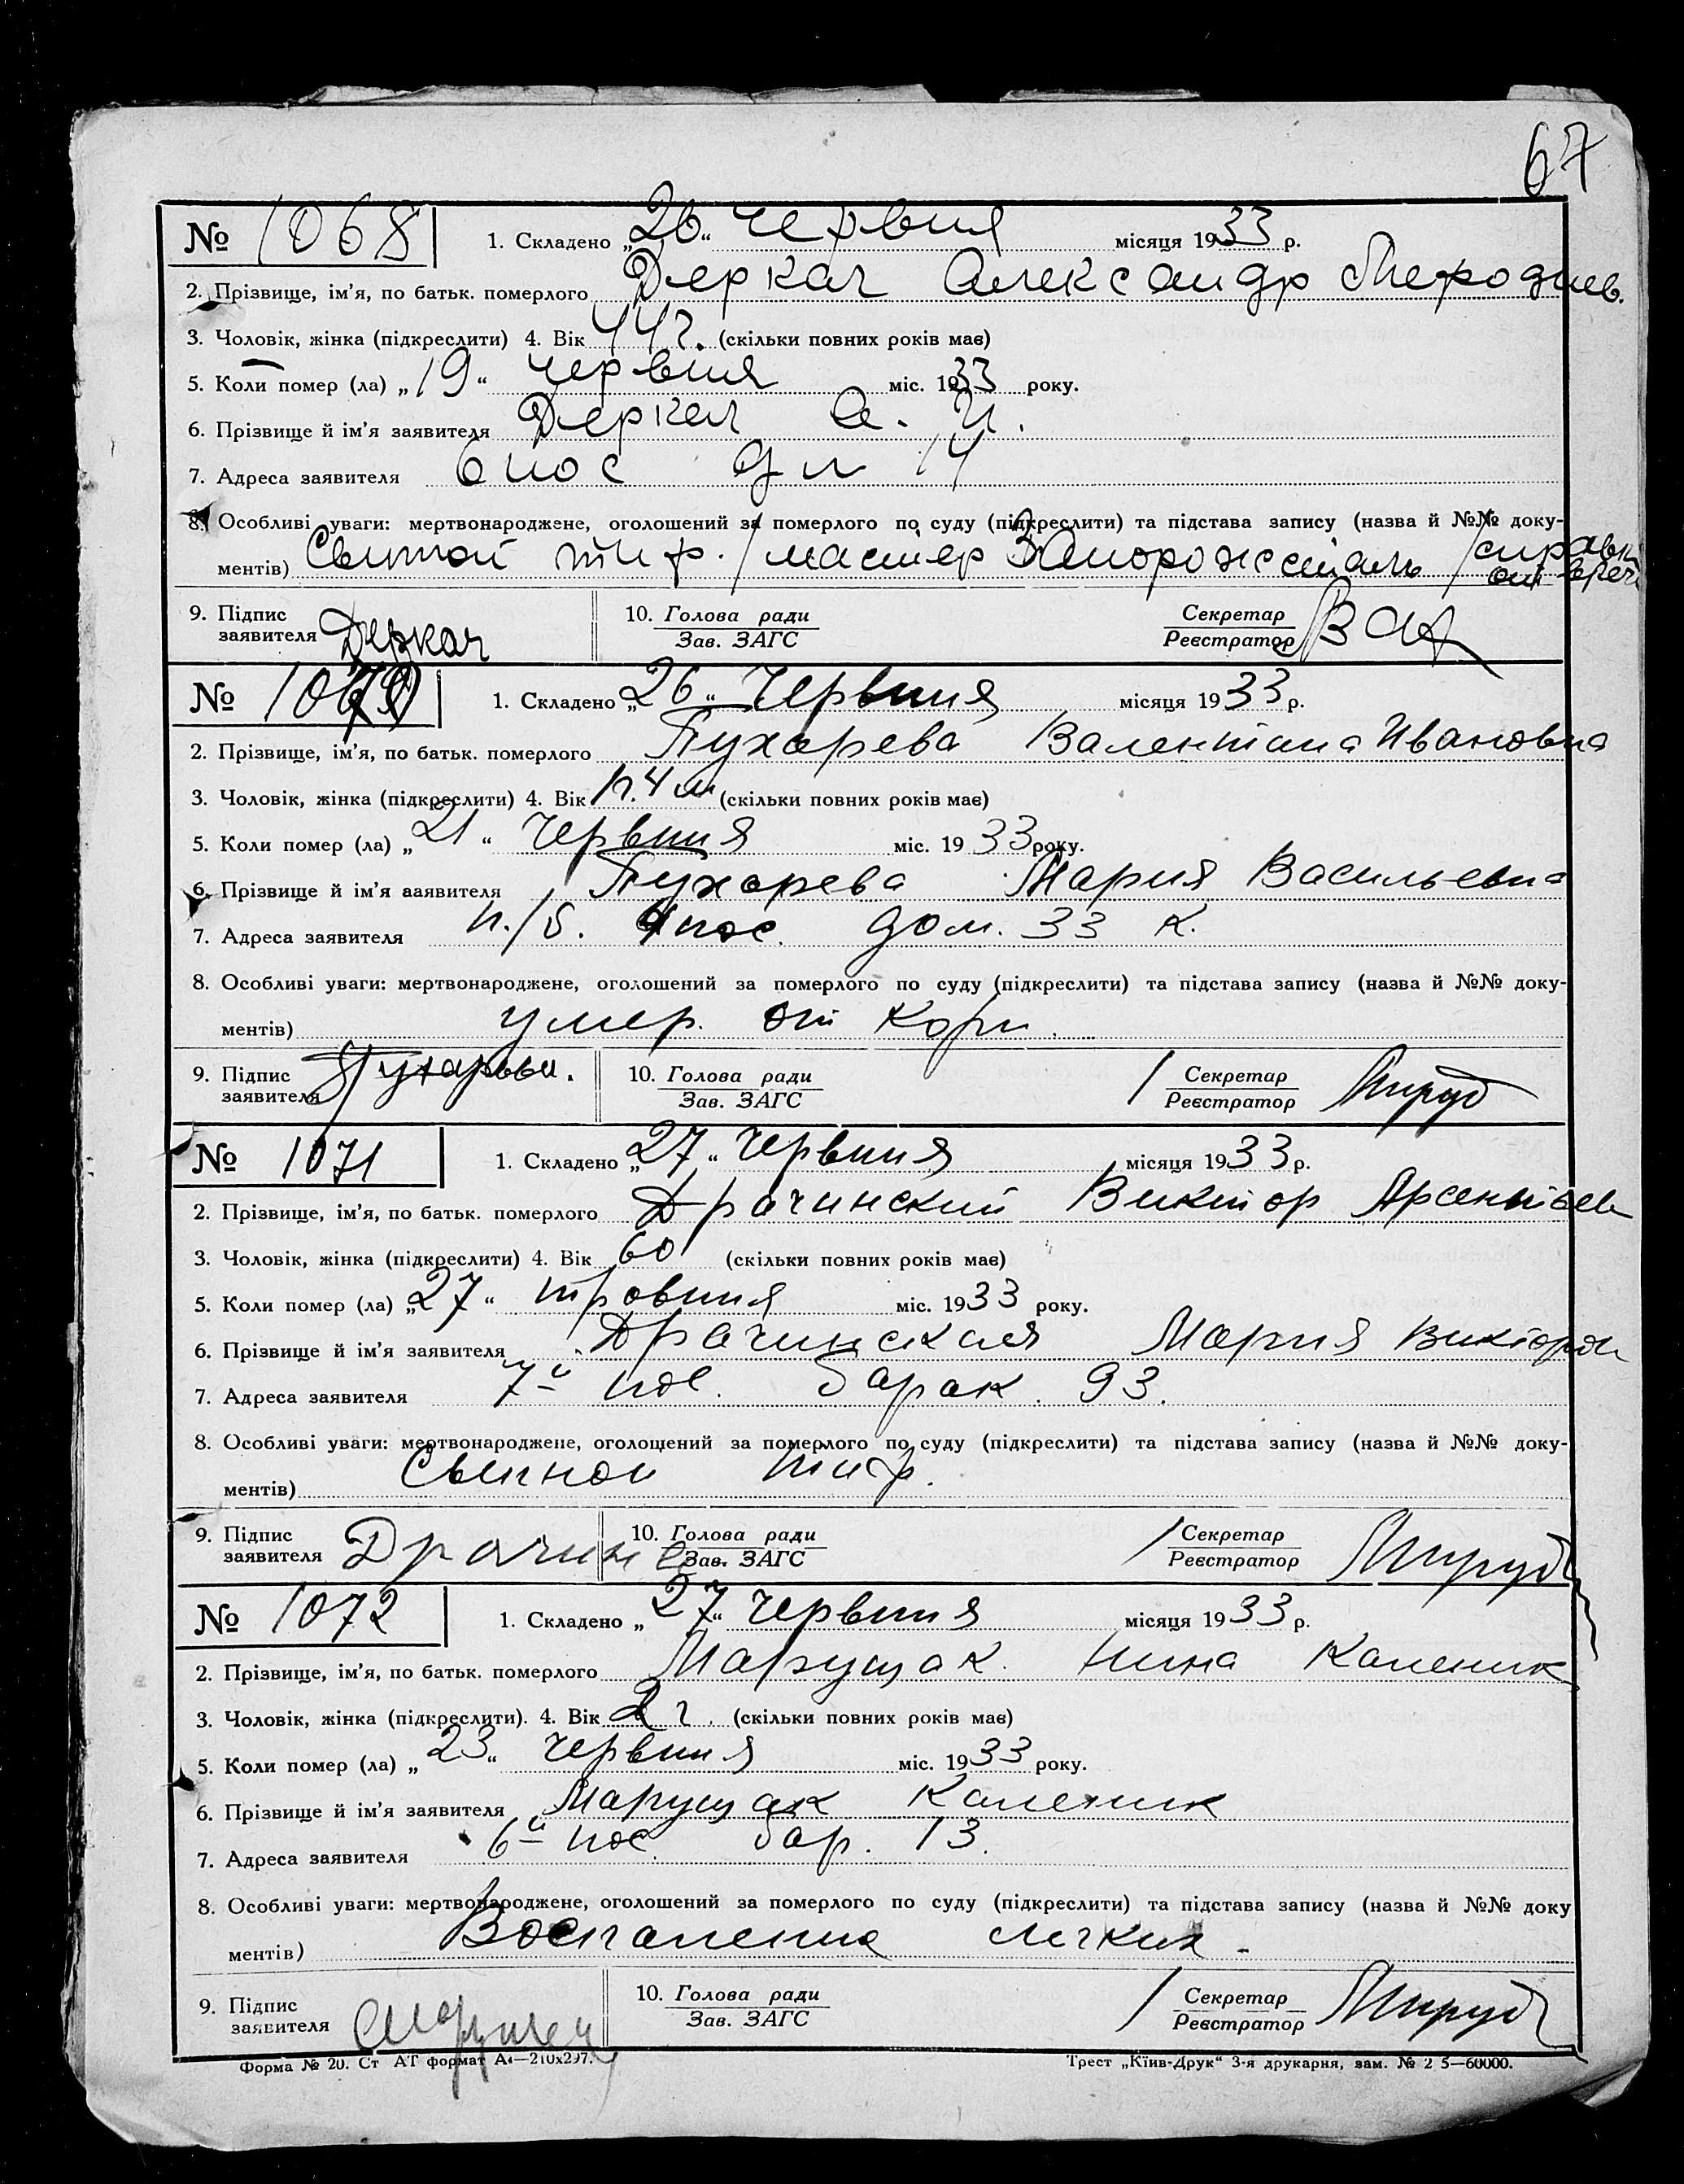 67
№ 1068 1. Складено „26“ червня місяця 1933 р.
2. Прізвище, ім’я, по батьк. померлого Деркач Александр Мефодиев.
3. Чоловік, жінка (підкреслити) 4. Вік 44 г. (скільки повних років має)
5. Коли помер (ла) „19“ червня міс. 1933 року.
6. Прізвище й ім’я заявителя Деркач А. И.
7. Адреса заявителя 6 пос д м 14
8. Особливі уваги: мертвонароджене, оголошений за померлого по суду (підкреслити) та підстава запису (назва й №№ доку-
ментів) Сыпной тиф. / мастер Запорожсталь / справка от врача
9. Підпис заявителя Деркач 10. Голова ради Зав. ЗАГС Секретар Реєстратор
№ 1070 1. Складено „26“ червня місяця 1933 р.
2. Прізвище, ім’я, по батьк. померлого Пухарева Валентина Ивановна
3. Чоловік, жінка (підкреслити) 4. Вік 1 г. 4 м (скільки повних років має)
5. Коли помер (ла) „21“ червня міс. 1933 року.
6. Прізвище й ім’я заявителя Пухарева Мария Васильевна
7. Адреса заявителя п./б. 4 пос. дом. 33 к.
8. Особливі уваги: мертвонароджене, оголошений за померлого по суду (підкреслити) та підстава запису (назва й №№ доку-
ментів) умер. от кори.
9. Підпис заявителя Пухарева. 10. Голова ради Зав. ЗАГС Секретар Реєстратор
№ 1071 1. Складено „27“ червня місяця 1933 р.
2. Прізвище, ім’я, по батьк. померлого Драчинский Виктор Арсентьев
3. Чоловік, жінка (підкреслити) 4. Вік 60 (скільки повних років має)
5. Коли помер (ла) „27“ травння міс. 1933 року.
6. Прізвище й ім’я заявителя Драчинская Мария Викторов
7. Адреса заявителя 7й пос. барак. 93.
8. Особливі уваги: мертвонароджене, оголошений за померлого по суду (підкреслити) та підстава запису (назва й №№ доку-
ментів) Сыпной тиф.
9. Підпис заявителя Драчинс 10. Голова ради Зав. ЗАГС Секретар Реєстратор
№ 1072 1. Складено „27“ червня місяця 1933 р.
2. Прізвище, ім’я, по батьк. померлого Марущак Нина Каленик
3. Чоловік, жінка (підкреслити). 4. Вік 2 г. (скільки повних років має)
5. Коли помер (ла) „23“ червня міс. 1933 року.
6. Прізвище й ім’я заявителя Марущак Каленик
7. Адреса заявителя 6й пос. бар. 13.
8. Особливі уваги: мертвонароджене, оголошений за померлого по суду (підкреслити) та підстава запису (назва й №№ доку
ментів) Воспаление легких.
9. Підпис заявителя 10. Голова ради Зав. ЗАГС Секретар Реєстратор
Форма № 20. Ст АТ формат А4—210х297. Трест „Київ-Друк“ 3-я друкарня, зам. № 2 5—60000.